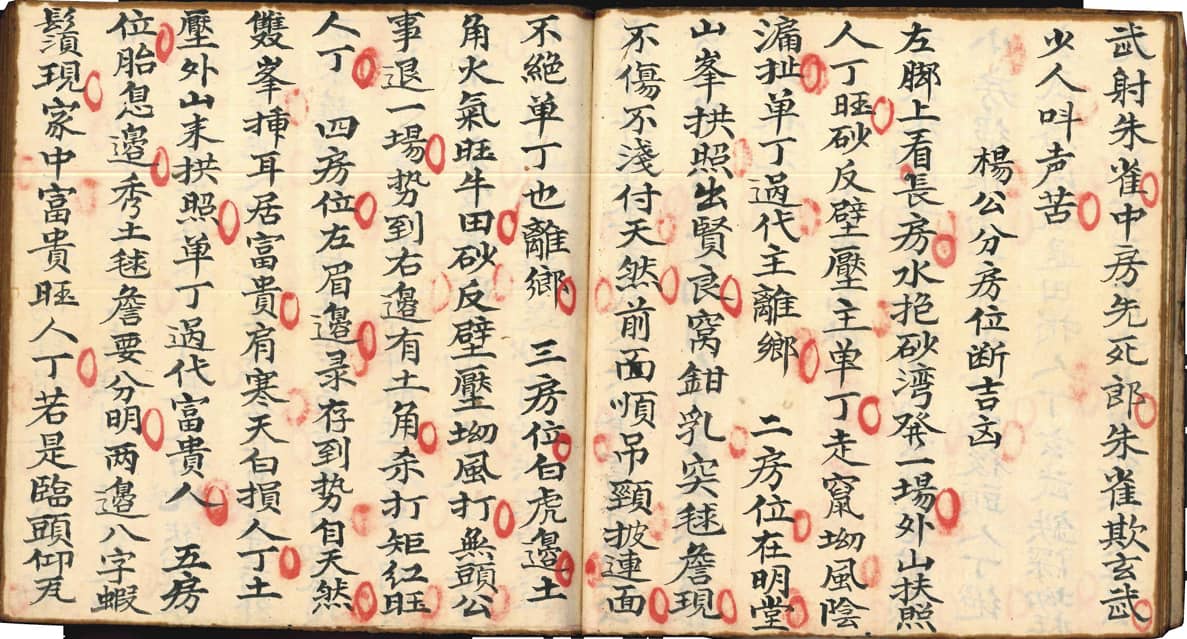 武射朱雀中房先死郎朱雀欺玄武
少人叫声苦
楊公分房位断吉凶
左脚上看長房水抱砂湾発一場外山扶照
人丁旺砂反壁壓主单丁走竄坳風陰
漏扯单丁過代主離鄉 二房位在明堂
山峯拱照出賢良窩鉗乳突毬簷現
不傷不淺付天然前面順吊頸披連面
不絕单丁也離鄉 三房位白虎邊土
角火氣旺牛田砂反壁壓坳風打無頭公
事退一場势到右邊有土角杀打矩红旺
人丁 四房位左眉邊录存到势自天然
雙峯揷耳居富貴有寒天白損人丁土
壓外山来拱照单丁過代富貴人 五房
位胎息邊秀土毬簷要分明两邊八字蝦
鬚現家中富貴旺人丁若是臨頭仰瓦